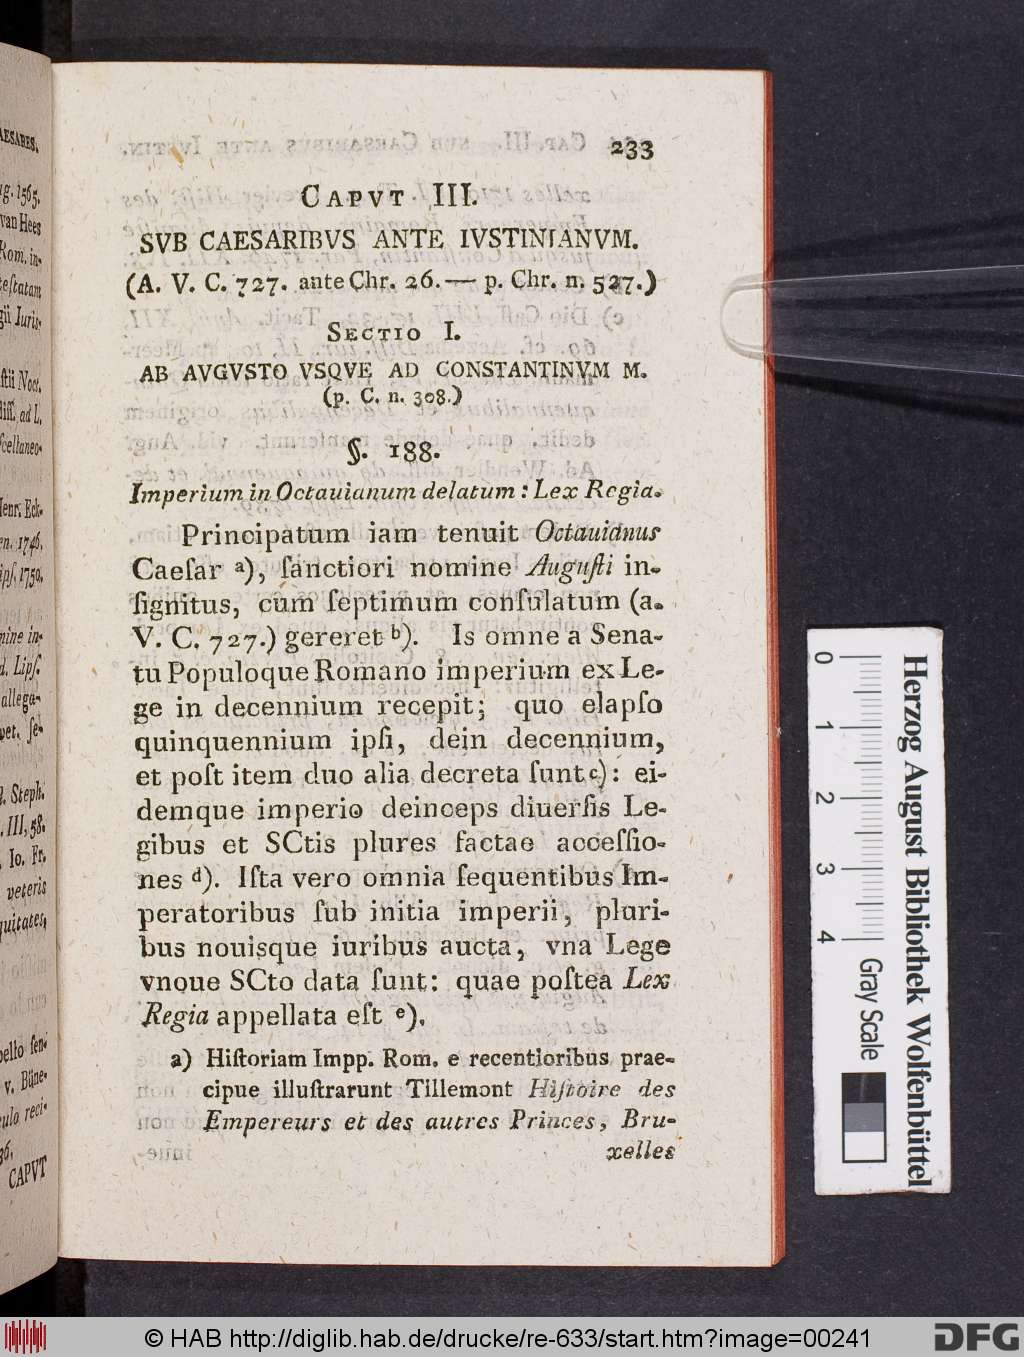 233
CAPVT III.
SVB CAESARIBVS ANTE IVSTINIANVM.
(A. V. C. 727. ante Chr. 26. — p. Chr. n. 527.)
SECTIO I.
AB AVGVSTO VSQVE AD CONSTANTINVM M.
(p. C. n. 308.)
§. 188.
Imperium in Octauianum delatum: Lex Regia.
Principatum iam tenuit Octauianus
Caeſar a), ſanctiori nomine Auguſti in-
ſignitus, cum ſeptimum conſulatum (a.
V. C. 727.) gereret b). Is omne a Sena-
tu Populoque Romano imperium ex Le-
ge in decennium recepit; quo elapſo
quinquennium ipſi, dein decennium,
et poſt item duo alia decreta ſunt c): ei-
demque imperio deinceps diuerſis Le-
gibus et SCtis plures factae acceſſio-
nes d). Iſta vero omnia ſequentibus Im-
peratoribus ſub initia imperii, pluri-
bus nouisque iuribus aucta, vna Lege
vnoue SCto data ſunt: quae poſtea Lex
Regia appellata eſt e).
a) Hiſtoriam Impp. Rom. e recentioribus prae-
cipue illuſtrarunt Tillemont Hiſtoire des
Empereurs et des autres Princes, Bru-
xelles
AESARES.
ug. 1565.
van Hees
Rom. in-
teſtatam
gii Iuris-
ſtii Noct.
diſſ. ad L.
ſcellaneo-
Henr. Eck-
en. 1746.
ipſ. 1750.
mine in-
d. Lipſ.
allega-
vet. ſe-
q. Steph.
. III, 58.
. Io. Fr.
veteris
quitates,
pello ſen-
v. Büne-
culo reci-
36.
CAPVT
0
1
2
3
4
Gray Scale
Herzog August Bibliothek Wolfenbüttel
© HAB http://diglib.hab.de/drucke/re-633/start.htm?image=00241
DFG